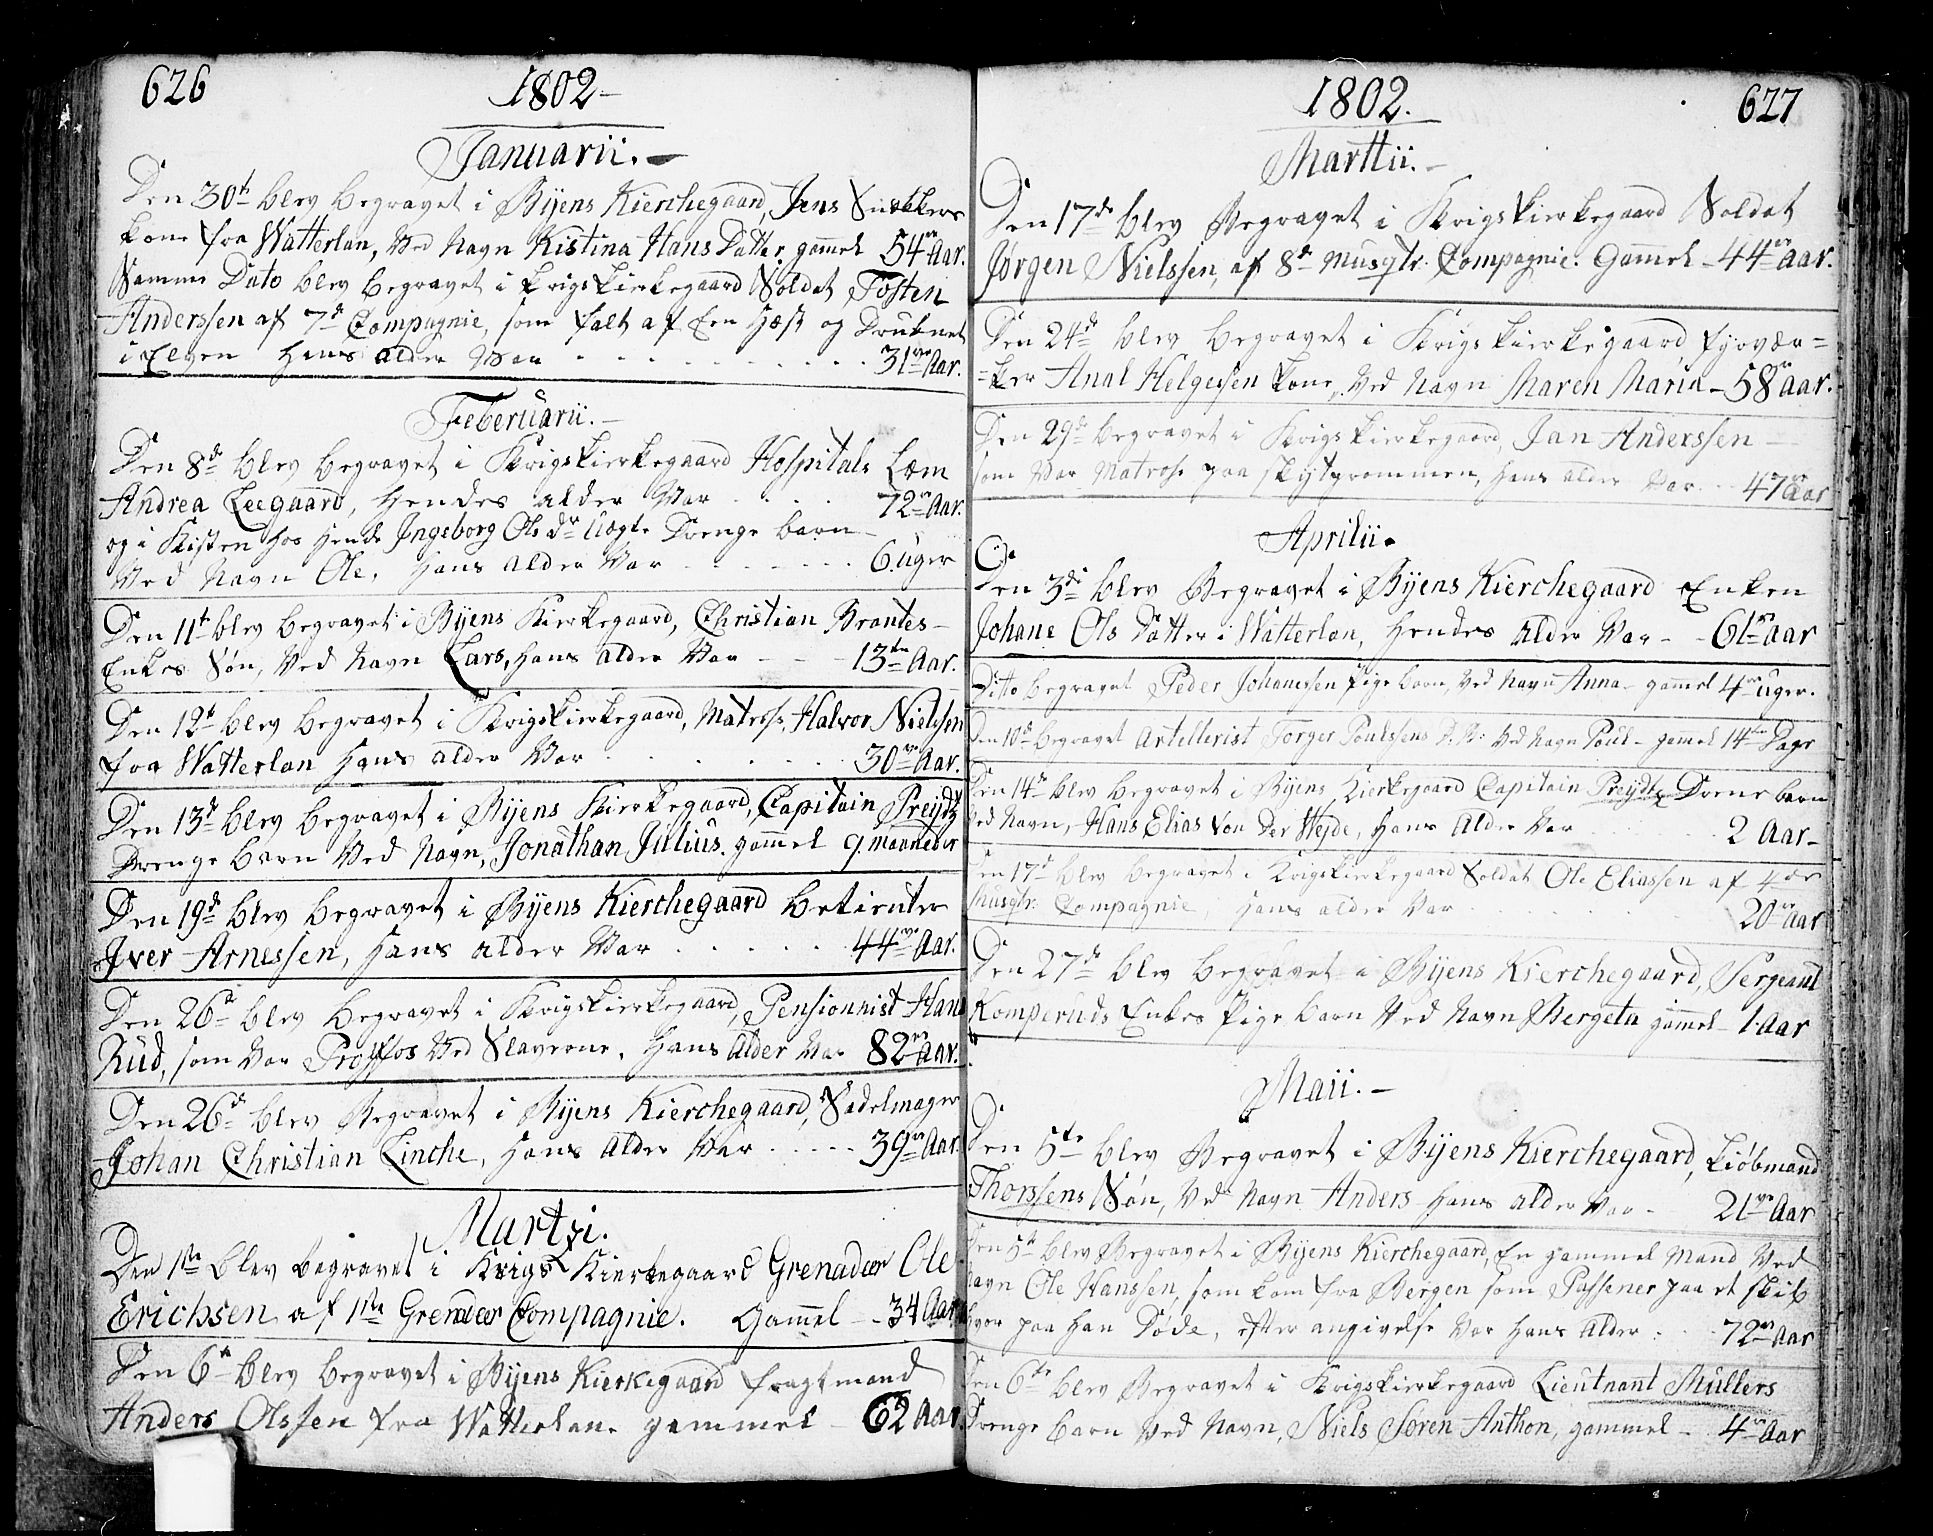 626
1802
Januarii.
Den 30th blev begravet i Byens Kierchegaard, Jens Snekkers
kone fra Watterlan, Ved Navn Kistina Hans Datter, gammel 54re Aar.
Samme Dato blev begravet i Krigskierkegaard Soldat Tosten
Anderssen af 7de Compagnie, som falt af En Hæst og Druknet
i Elven Hans alder Var 31ve Aar.
Feberuarii.
Den 8de blev begravet i Krigskierkegaard Hospitals Læm
Andrea Leegaard, Hendes alder Var 72re Aar.
og i Kisten hos Hende Ingeborg Ols dr Uægte Drenge barn
Ved Navn Ole, Hans alder Var 6. uger
Den 11te blev begravet i Byens Kierkegaard, Christian Brantes
Enkes Søn, Ved Navn Lars, Hans alder Var 13ten Aar.
Den 12te blev begravet i Krigskierkegaard, Matros Halvor Nielssen
fra Watterlan Hans alder Var 30ve Aar.
Den 13de blev begravet i Byens Kierkegaard, Capitain Preijdtz
Drenge barn Ved Navn, Jonathan Julius. gammel 9. maaneder
Den 19de blev begravet i Byens Kierchegaard betienter
Iver Arnessen, Hans alder Var 44re Aar.
Den 26de blev begravet i Krigskierkegaard, Pensionnist Hans
Rud, som Var Proffos Ved Slaverne, Hans Alder Var 82re Aar.
Den 26de blev Begravet i Byens Kierchegaard, Sadelmager
Johan Christian Linche, Hans alder Var 39re Aar.
Martzi.
Den 1ste blev begravet i Krigs Kierkegaard Grenadeer Ole
Erichsen af 1ste Grenadeer Compagnie. Gammel 34 Aar
Den 6te blev begravet i Byens Kierkegaard fragtmand
Anders Olssen fra Watterlan gammel 62 Aar.
1802.
627
Marttii.
Den 17de blev Begravet i Krigskierkegaard Soldat
Jørgen Nielssen, af 8de Musqtr. Compagnie. Gammel 44re Aar.
Den 24de blev begravet i Krigskierkegaard, fyrvær=
=ker Anal Helgessen kone, Ved Navn Maren Maria 58re Aar.
Den 29de begravet i Krigskierkegaard, Jan Anderssen
som Var Matros paa Skytprammen, Hans alder Var 47re Aar
Aprilii.
Den 3die blev Begravet i Byens Kierchegaard Enken
Johane Ols Datter i Watterlan, Hendes alder Var 61re Aar
Ditto begravet Peder Johanessen Pige barn, Ved Navn Anna gammel 4re uger.
Den 10de begravet Artellerist Torger Poulssens D. B: Ved Navn Poul gammel 14ten Dage
Den 14de blev begravet i Byens Kierkegaard Capitain Preijdtz Drene barn
Ved Navn, Hans Elias Von Der Heyde, Hans Alder Var 2 Aar
Den 17de blev begravet i Krigskierkegaard Soldat Ole Eliassen af 4de
Musqtr: Compagnie Hans alder Var 20ve Aar
Den 27de blev begravet i Byens Kierchegaard, Sergeant
Komperuds Enkes Pige barn Ved Navn Bergeta gammel 1. Aar
Maii.
Den 5te blev Begravet i Byens Kierchegaard, Kiøbmand
Thorssens Søn, Ved Navn Anders Hans alder Var 21ve Aar
Den 5te blev Begravet i Byens Kierchegaard, En gammel Mand Ved
Navn Ole Hanssen, som kom fra Bergen som Passener paa et Skib
Hvor paa Han Døde, efter angivelse Var Hans Alder 72re Aar
Den 6te blev Begravet i Krigskierkegaard Lieutnant Mullers
Drenge barn Ved Navn, Niels Søren Anthon, gammel 4re Aar